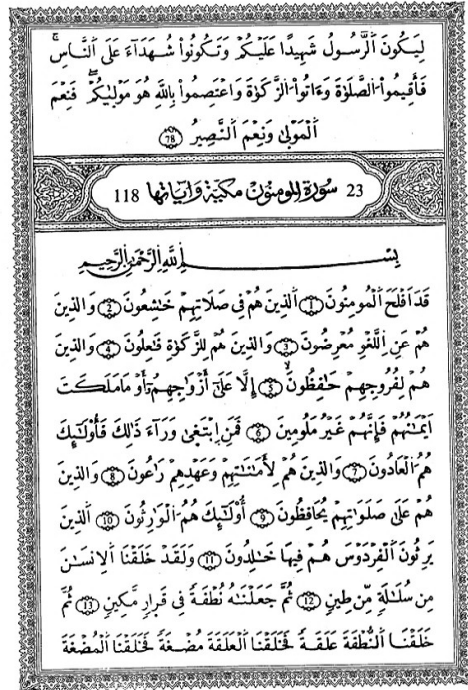 لِيَكُونَ اَلرَّسُولُ شَهِيدًا عَلَيْكُمْ وَتَكُونُواْ شُهَدَآءَ عَلَى اَلنَّاسِ
فَأَقِيمُواْ اَلصَّلَوٰةَ وَءَاتُواْ اَلزَّكَوٰةَ وَاعْتَصِمُواْ بِاللَّهِ هُوَ مَوْلَيٰكُمْ فَنِعْمَ
اَلْمَوْلَىٰ وَنِعْمَ اَلنَّصِيرُ 78
23 سورة المومنون مكية وآياتها 118
بِسْمِ اِللَّهِ اِلرَّحْمَٰنِ اِلرَّحِيمِ
قَدَ اَفْلَحَ اَلْمُومِنُونَ 1 اَلذِينَ هُمْ فِى صَلَاتِهِمْ خَٰشِعُونَ 2 وَالذِينَ
هُمْ عَنِ اِللَّغْوِ مُعْرِضُونَ 3 وَالذِينَ هُمْ لِلزَّكَوٰةِ فَٰعِلُونَ 4 وَالذِينَ
هُمْ لِفُرُوجِهِمْ حَٰفِظُونَ 5 إِلَّا عَلَىٰ أَزْوَٰجِهِمُۥٓ أَوْ مَا مَلَكَتَ
اَيْمَٰنُهُمْ فَإِنَّهُمْ غَيْرُ مَلُومِينَ 6 فَمَنِ اِبْتَغَىٰ وَرَآءَ ذَٰلِكَ فَأُوْلَٰٓئِكَ
هُمُ اَلْعَادُونَ 7 وَالذِينَ هُمْ لِأَمَٰنَٰتِهِمْ وَعَهْدِهِمْ رَٰعُونَ 8 وَالذِينَ
هُمْ عَلَىٰ صَلَوَٰتِهِمْ يُحَافِظُونَ 9 أُوْلَٰٓئِكَ هُمُ اَلْوَٰرِثُونَ 10 اَلذِينَ
يَرِثُونَ اَلْفِرْدَوْسَ هُمْ فِيهَا خَٰلِدُونَ 11 وَلَقَدْ خَلَقْنَا اَلِانسَٰنَ
مِن سُلَٰلَةٍ مِّن طِينٍ 12 ثُمَّ جَعَلْنَٰهُ نُطْفَةً فِى قَرَارٍ مَّكِينٍ 13 ثُمَّ
خَلَقْنَا اَلنُّطْفَةَ عَلَقَةً فَخَلَقْنَا اَلْعَلَقَةَ مُضْغَةً فَخَلَقْنَا اَلْمُضْغَةَ